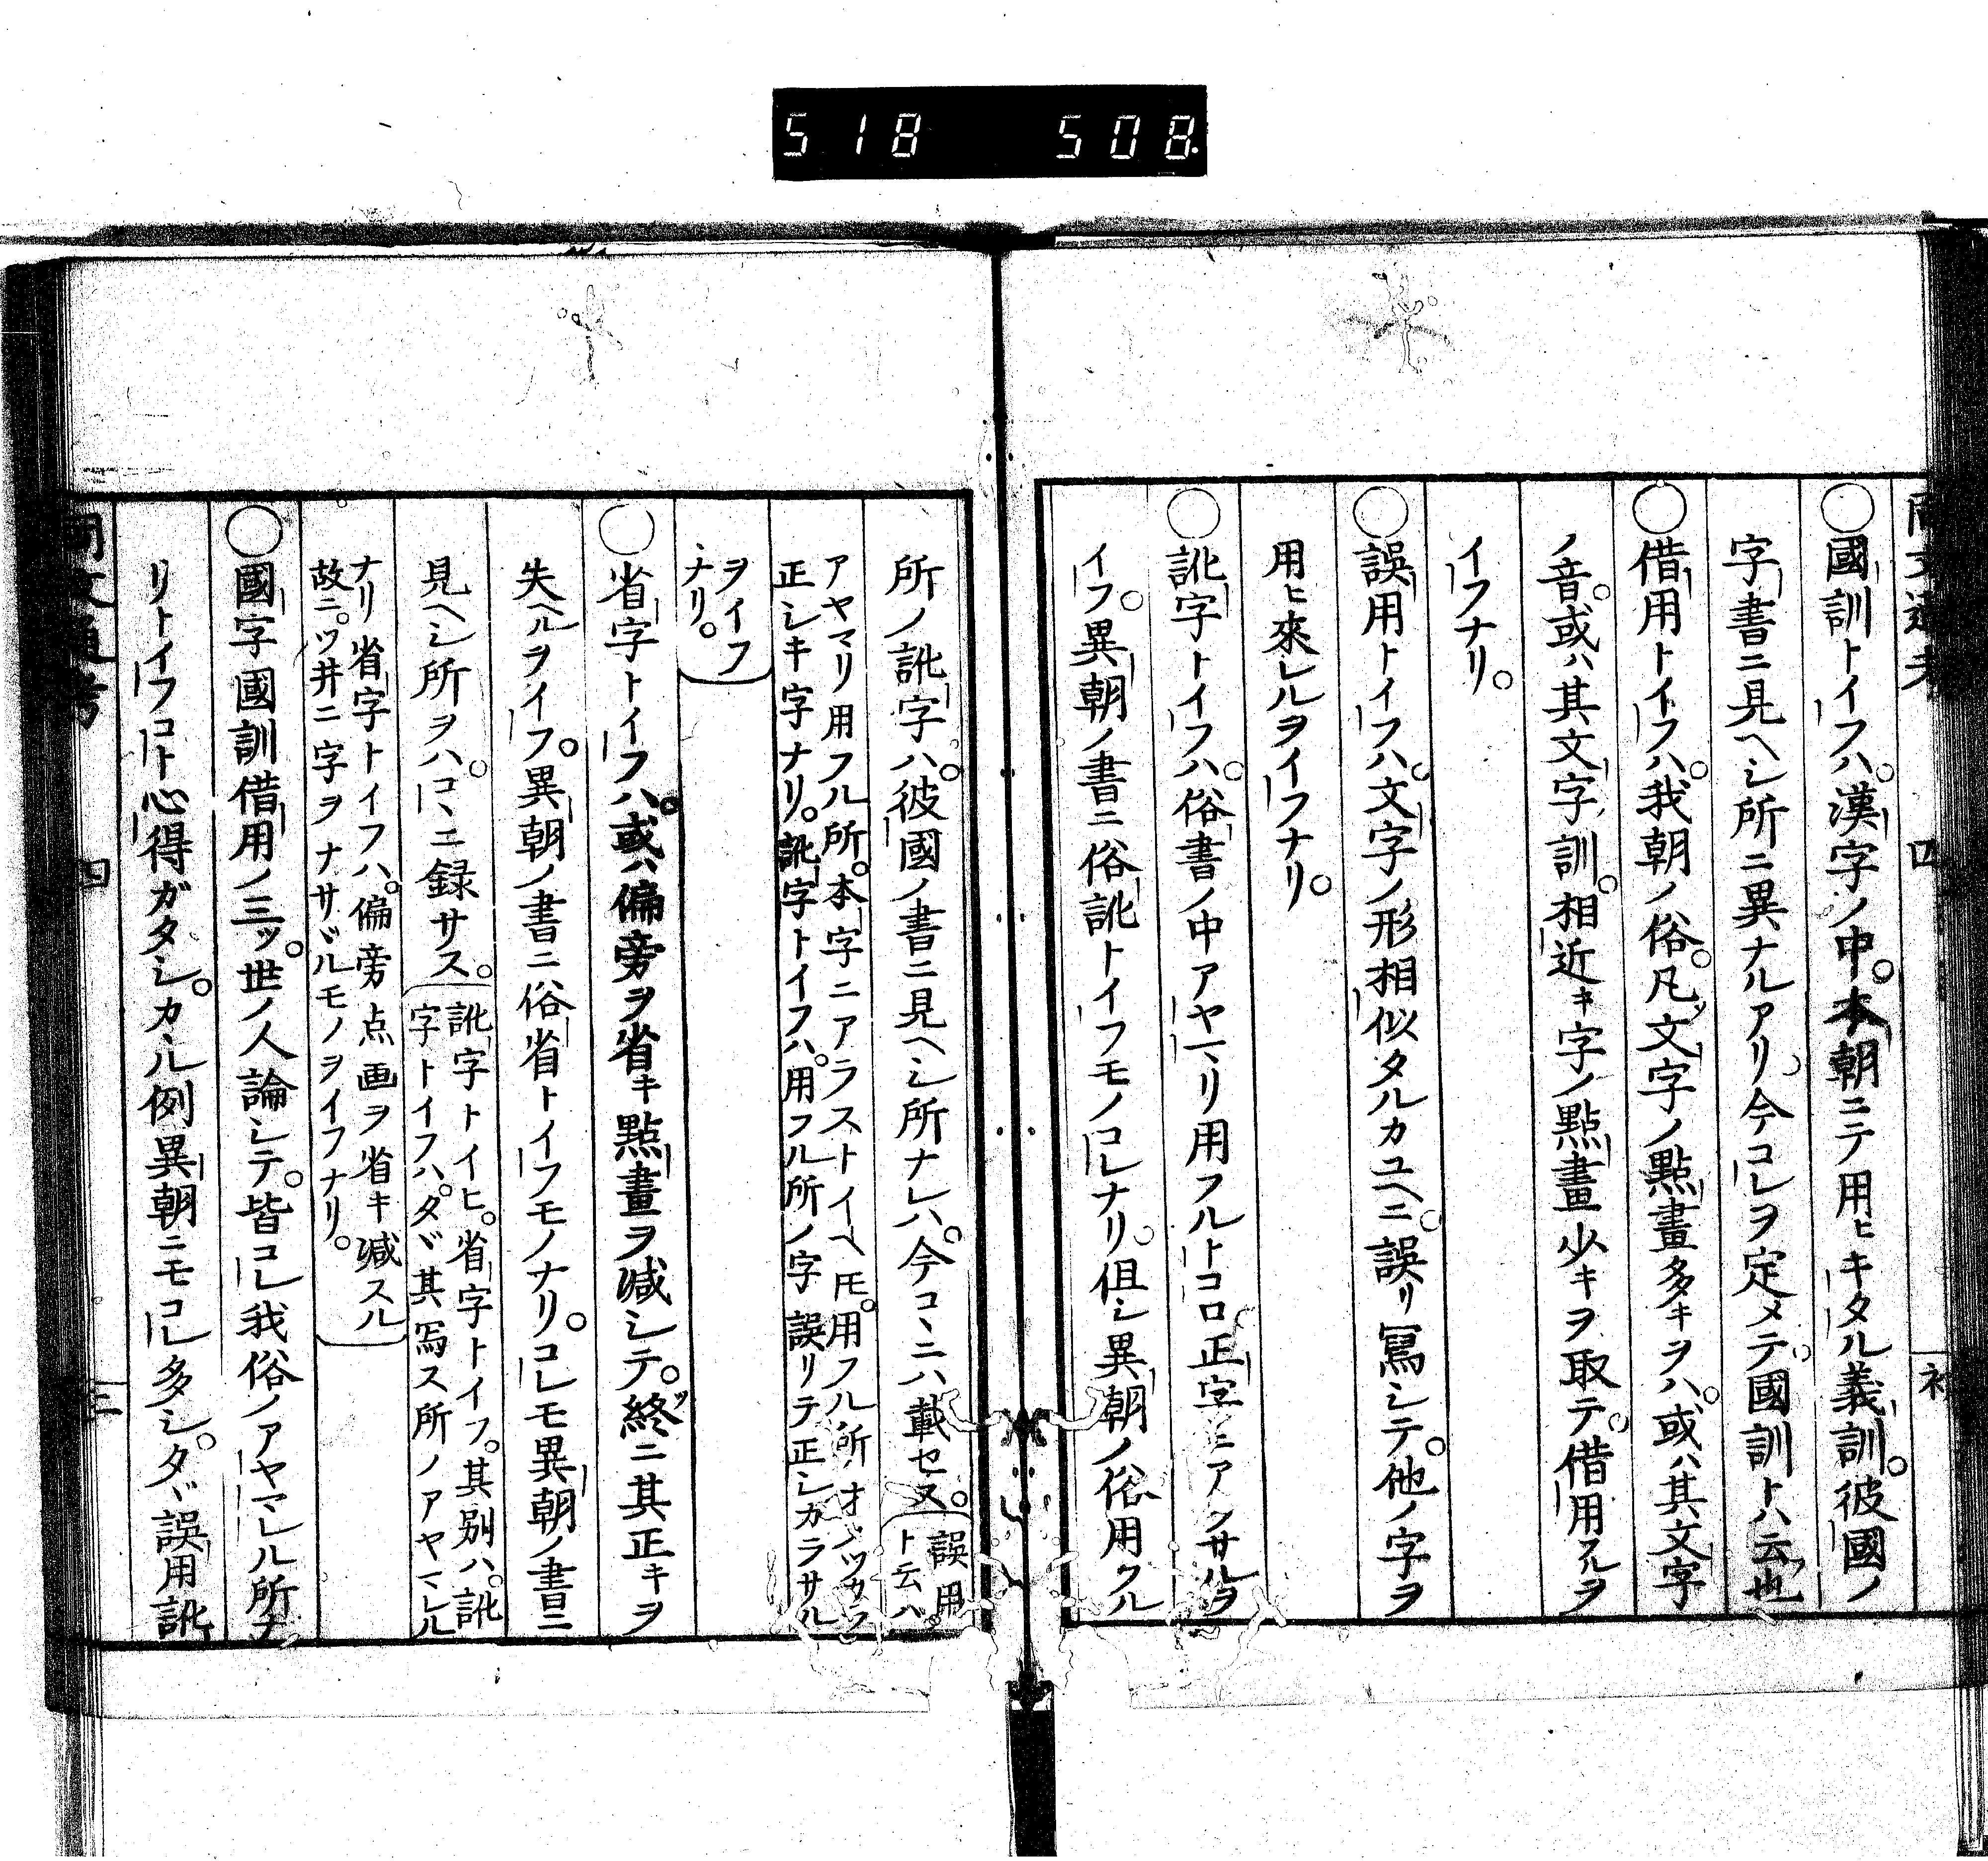 518 508.
○國訓トイフハ。漢字ノ中。本朝ニテ用ヒキタル義訓。彼國ノ
字書ニ見ヘシ所ニ異ナルアリ。今コレヲ定メテ。國訓トハ云也
○借用トイフハ。我朝ノ俗。凡ソ文字ノ點畫多キヲハ。或ハ其文字
ノ音。或ハ其文字訓。相近キ字ノ點畫少キヲ取テ。借用フルヲ
イフナリ。
○誤用トイフハ。文字ノ形相似タルカユヘニ。誤リ寫シテ。他ノ字ヲ
用ヒ來レルヲイフナリ。
○訛字トイフハ。俗書ノ中アヤマリ用フルトコロ正字ニアラサルヲ
イフ。異朝ノ書ニ俗訛トイフモノコレナリ。但シ異朝ノ俗用フル
所ノ訛字ハ。彼國ノ書ニ見ヘシ所ナレハ。今コヽニハ載セス。誤用
ト云ハ。
アヤマリ用フル所。本字ニアラストイヘトモ。用フル所ノ
正シキ字ナリ。訛字トイフハ。用フル所ノ字 誤リテ正シカラサル
ヲイフ
ナリ。
○省字トイフハ。或ハ偏旁ヲ省キ點畫ヲ減シテ。終ニ其正キヲ
失ヘルヲイフ。異朝ノ書ニ俗省トイフモノナリ。コレモ異朝ノ書ニ
見ヘシ所ヲハ。コヽニ録サス。訛字トイヒ。省字トイフ。其別ハ。訛
字トイフハ。タヾ其寫ス所ノアヤマレル
ナリ 省字トイフハ。偏旁点画ヲ省キ減スル
故ニ。ツ井ニ字ヲナサヾルモノヲイフナリ。
○國字國訓借用ノ三ッ。世ノ人論シテ。皆コレ我俗ノアヤマレル所ナ
リトイフコト心得ガタシ。カヽル例異朝ニモコレ多シ。タヾ誤用訛
同文通考 四 三